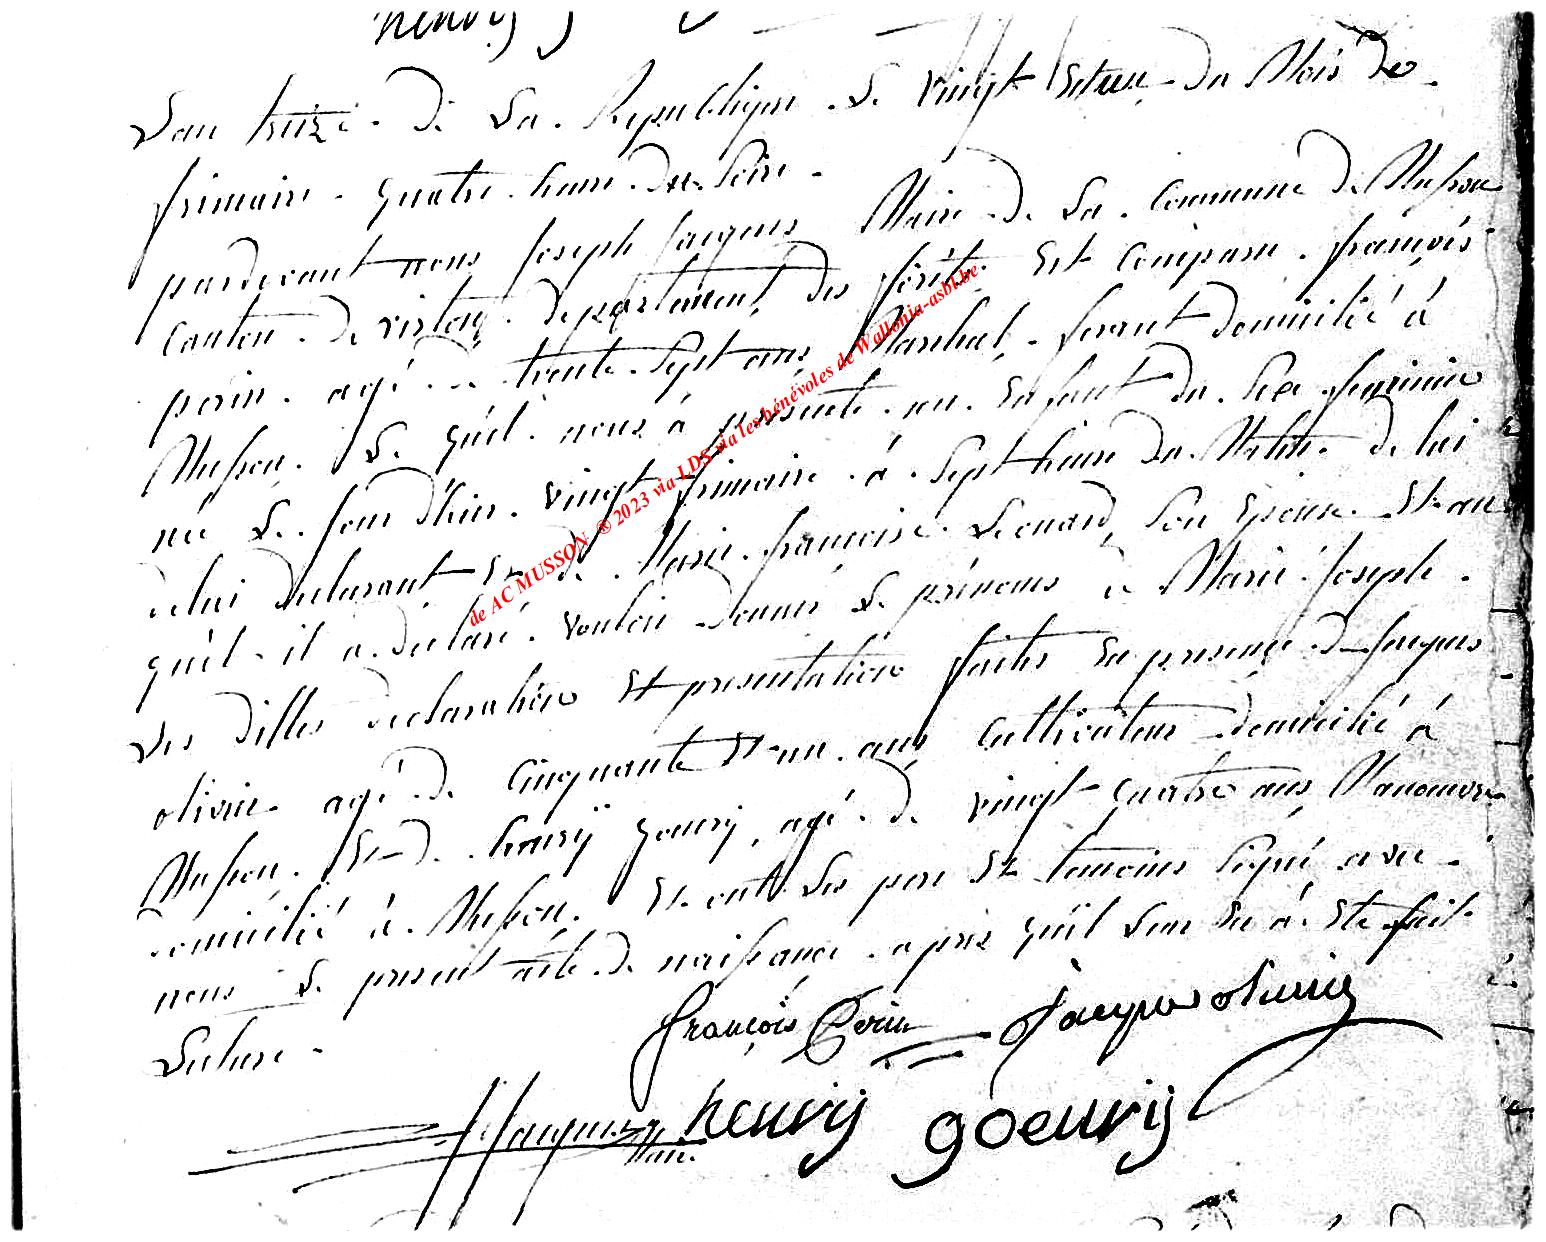 henry g
Lan treize de La Republique Le vingt et un du Mois de
frimaire quatre heure du Soire
pardevant nous Joseph Jacques Maire de La Commune de Musson
Canton de virton departement des forêts Est Comparu françois
perin agé de trente Sept ans Marchal ferant domicilié à
Musson Le quel nous à présenté un Enfant du Sexe feminin
née Le Jour d'hier vingt frimaire à Sept heure du Matin de lui
de lui declarant Et de Marie françoise Leonard Son Epouse Et au
quel il a declaré vouloir donner Le prénoms de Marie Joseph
Les dittes declaration Et presentation faites En presence de Jacques
olivier agé de Cinquante Et un ans Cultivateur domicilié à
Musson Et de henrÿ gourÿ agé de vingt quatre ans Manouvre
domicilié à Musson Et ont Les pere Et temoins Signé avec
nous Le present acte de naissance apres quil Leur En à Eté fait
Lecture
françois Perin Jacque oliviÿ
JJacques Mair henrÿ goeurÿ
de AC MUSSON ® 2023 via LDS via les bénévoles de Wallonia-asbl.be